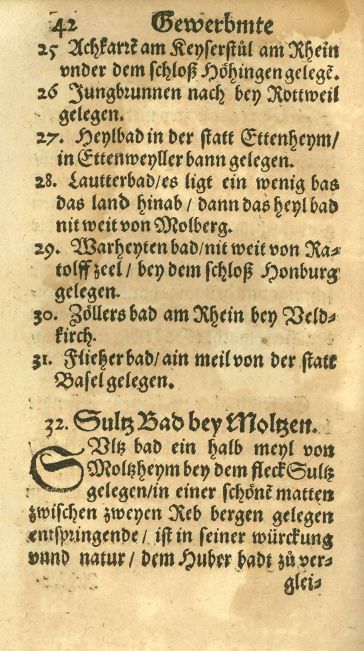 42 Gewerbmte
25 Achkarrẽ am Keyserstůl am Rhein
vnder dem schloß Höhingen gelegẽ.
26 Jungbrunnen nach bey Rottweil
gelegen.
27. Heylbad in der statt Ettenheym/
in Ettenweyller bann gelegen.
28. Lautterbad/es ligt ein wenig bas
das land hinab / dann das heyl bad
nit weit von Molberg.
29. Warheyten bad/nit weit von Ra-
tolff zeel / bey dem schloß Honburg
gelegen.
30. Zöllers bad am Rhein bey Veld-
kirch.
31. Flietzer bad/ain meil von der statt
Basel gelegen.
32. Sultz Bad bey Moltzen.
SVltz bad ein halb meyl von
Moltzheym bey dem fleck Sultz
gelegen/in einer schönẽ matten
zwischen zweyen Reb bergen gelegen
entspringende / ist in seiner würckung
vnnd natur / dem Huber badt zů ver-
glei-